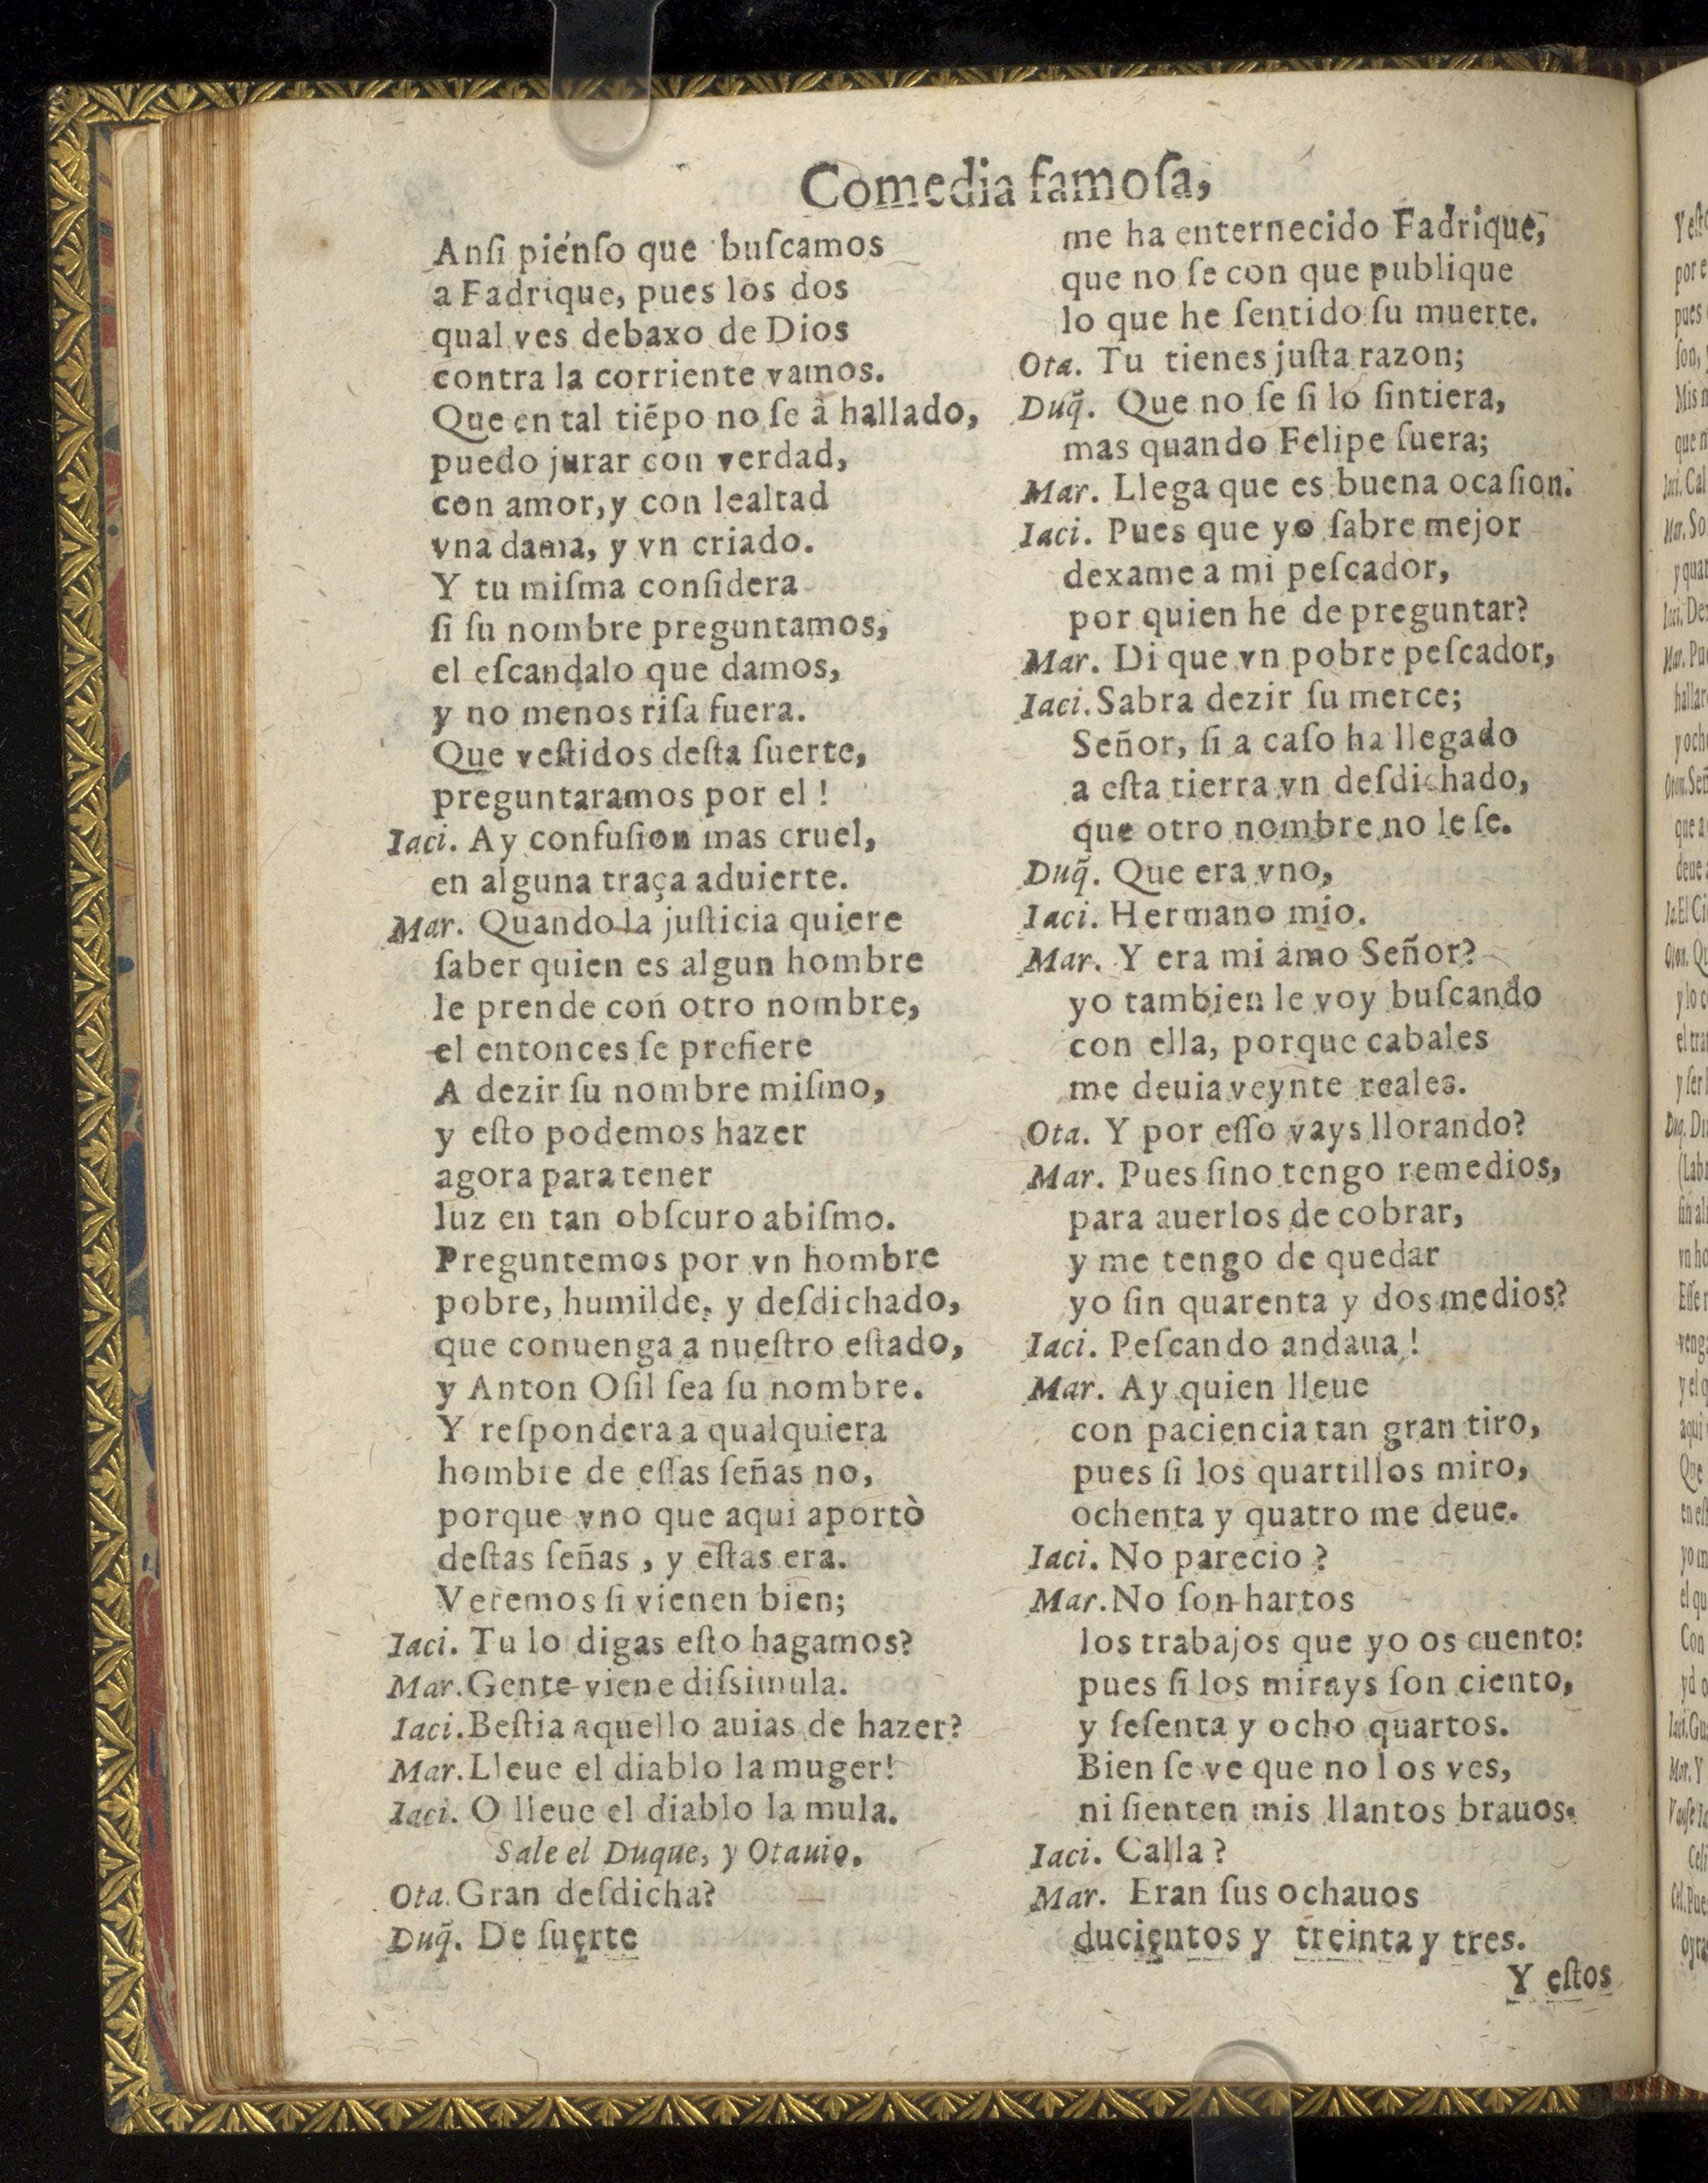 Comedia famoſa,
Anſi piénſo que buſcamos
a Fadrique, pues los dos
qual ves debaxo de Dios
contra la corriente vamos.
Que en tal tiẽpo no ſe à hallado,
puedo jurar con verdad,
con amor, y con lealtad
vna dama, y vn criado.
Y tu miſma conſidera
ſi ſu nombre preguntamos,
el eſcandalo que damos,
y no menos riſa fuera.
Que veſtidos deſta ſuerte,
preguntaramos por el !
Iaci. Ay confuſion mas cruel,
en alguna traça aduierte.
Mar. Quando la juſticia quiere
ſaber quien es algun hombre
le prende con otro nombre,
el entonces ſe prefiere
A dezir ſu nombre miſmo,
y eſto podemos hazer
agora para tener
luz en tan obſcuro abiſmo.
Preguntemos por vn hombre
pobre, humilde, y deſdichado,
que conuenga a nueſtro eſtado,
y Anton Oſil ſea ſu nombre.
Y reſpondera a qualquiera
hombre de eſſas ſeñas no,
porque vno que aqui aportò
deſtas ſeñas , y eſtas era.
Veremos ſi vienen bien;
Iaci. Tu lo digas eſto hagamos?
Mar. Gente viene diſsimula.
Iaci. Beſtia aquello auias de hazer?
Mar. Lleue el diablo la muger!
Iaci. O lleue el diablo la mula.
Sale el Duque, y Otauio.
Ota. Gran deſdicha?
Duq̃. De ſuerte
me ha enternecido Fadrique,
que no ſe con que publique
lo que he ſentido ſu muerte.
Ota. Tu tienes juſta razon;
Duq̃. Que no ſe ſi lo ſintiera,
mas quando Felipe fuera;
Mar. Llega que es buena ocaſion.
Iaci. Pues que yo ſabre mejor
dexame a mi peſcador,
por quien he de preguntar?
Mar. Di que vn pobre peſcador,
Iaci. Sabra dezir ſu merce;
Señor, ſi a caſo ha llegado
a eſta tierra vn deſdichado,
que otro nombre no le ſe.
Duq̃. Que era vno,
Iaci. Hermano mio.
Mar. Y era mi amo Señor?
yo tambien le voy buſcando
con ella, porque cabales
me deuia veynte reales.
Ota. Y por eſſo vays llorando?
Mar. Pues ſino tengo remedios,
para auerlos de cobrar,
y me tengo de quedar
yo ſin quarenta y dos medios?
Iaci. Peſcando andaua !
Mar. Ay quien lleue
con paciencia tan gran tiro,
pues ſi los quartillos miro,
ochenta y quatro me deue.
Iaci. No parecio ?
Mar. No ſon hartos
los trabajos que yo os cuento:
pues ſi los mirays ſon ciento,
y ſeſenta y ocho quartos.
Bien ſe ve que no los ves,
ni ſienten mis llantos brauos.
Iaci. Calla ?
Mar. Eran ſus ochauos
ducientos y treinta y tres.
Y eſtos